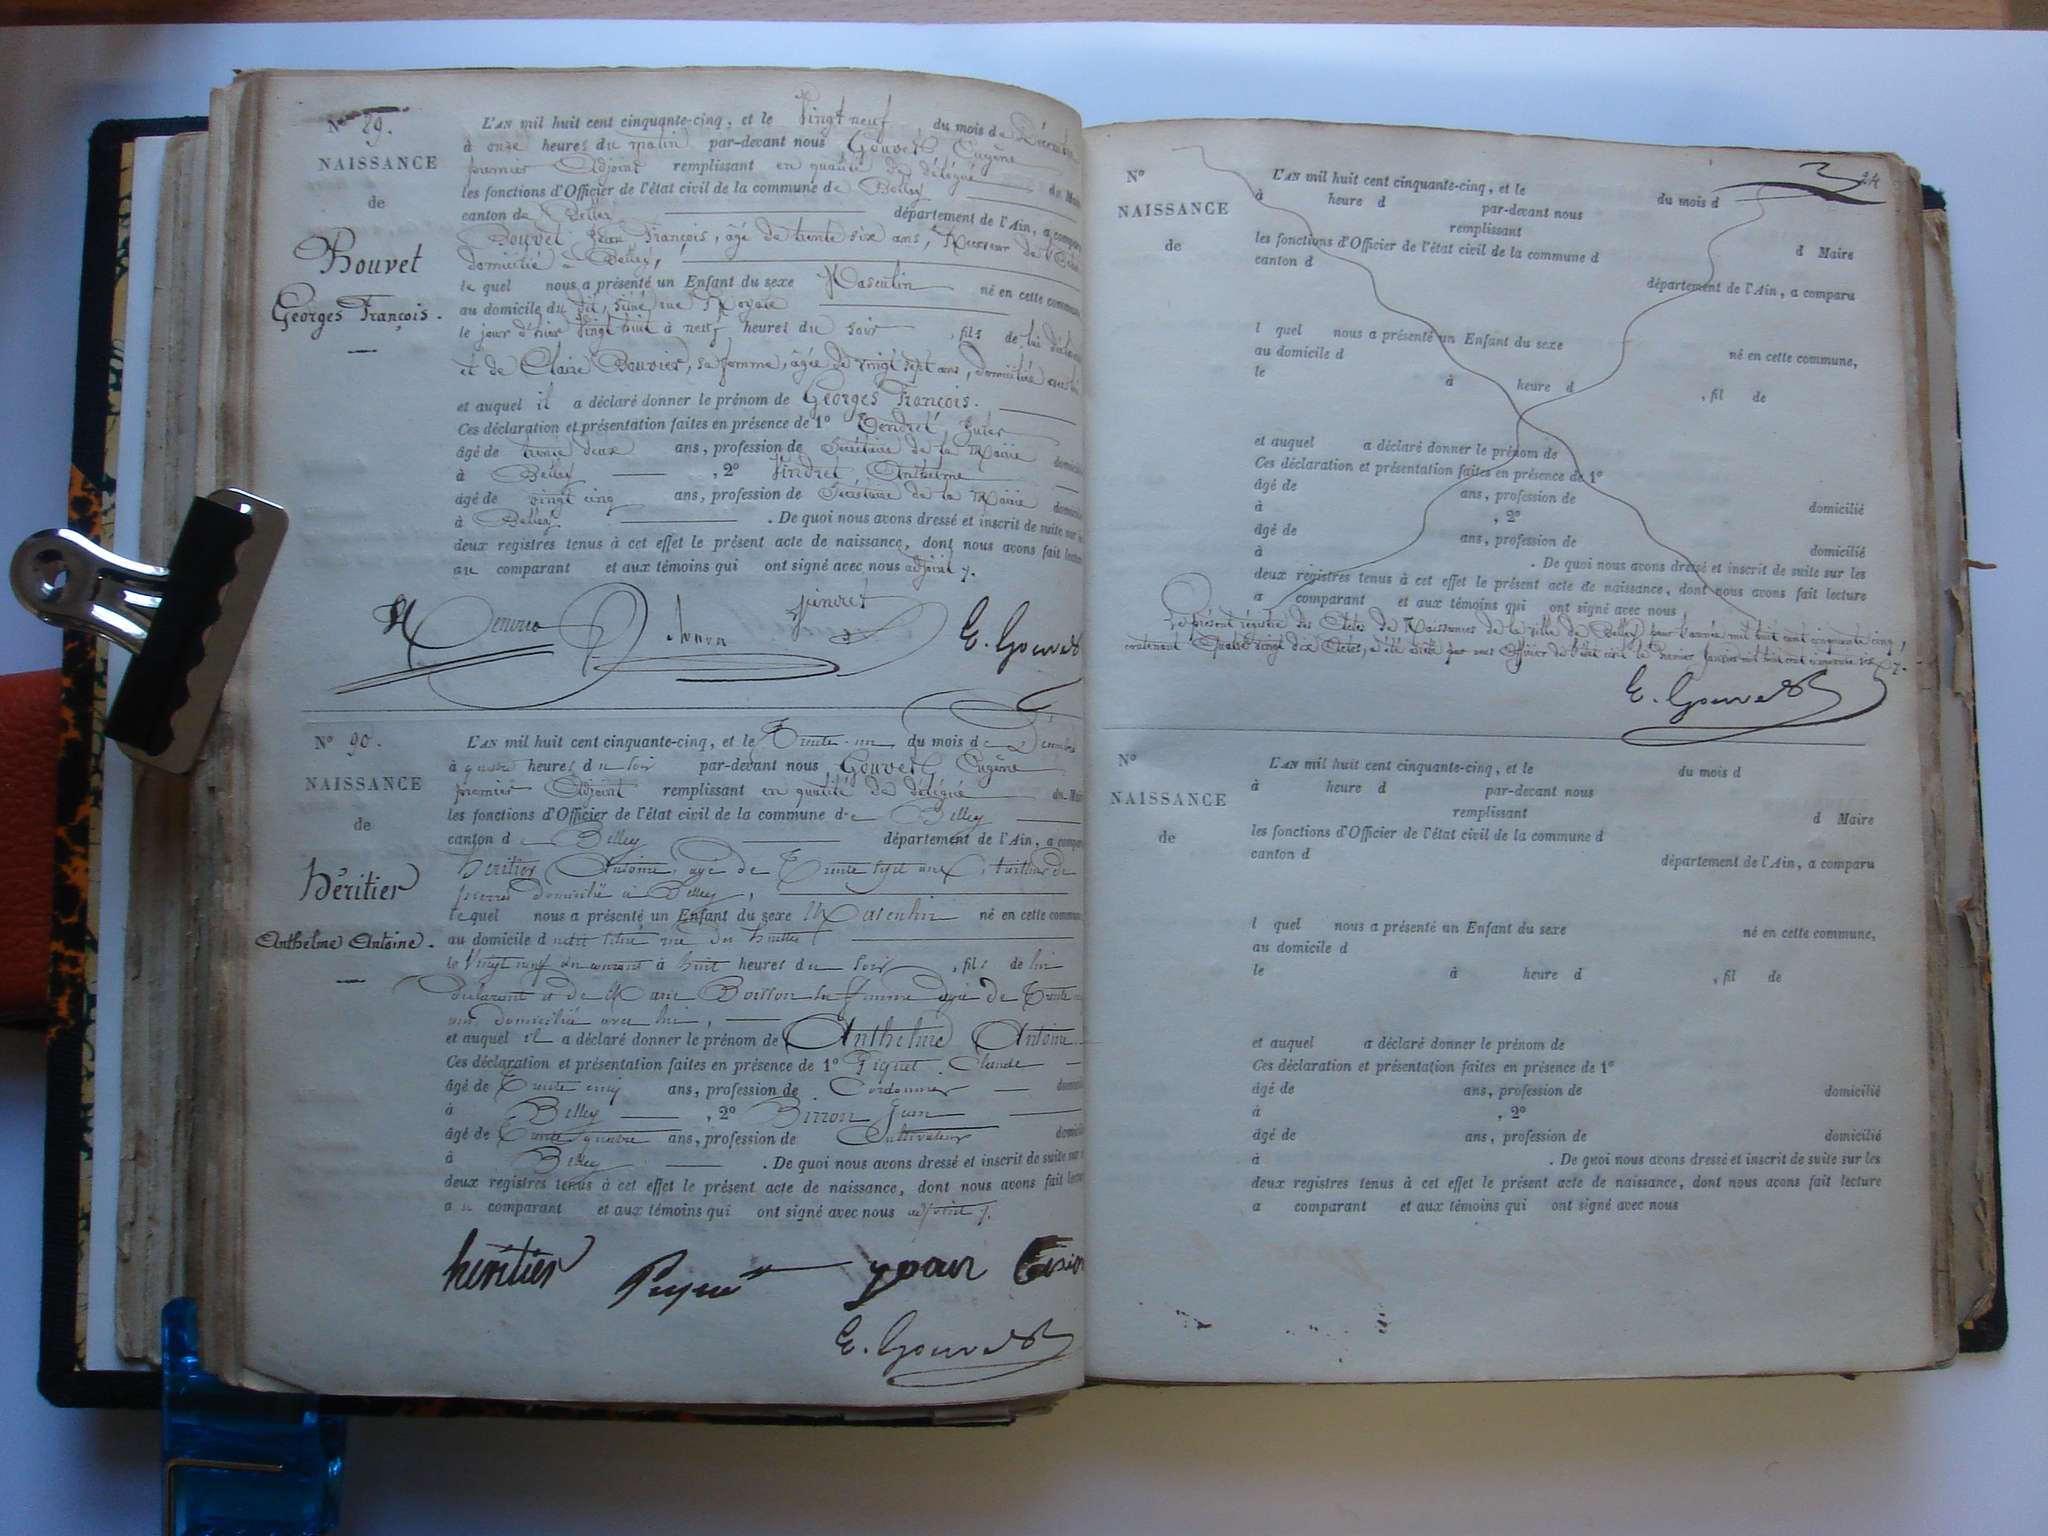 N° 89.
NAISSANCE
de
Bouvet
Georges François.
L'AN mil huit cent cinquante-cinq, et le Vingt neuf du mois de Décembre
à onze heures du matin par-devant nous Gouvet Eugène
premier Adjoint remplissant en qualité de délégué du Maire
les fonctions d'Officier de l'état civil de la commune de Belley
canton de Belley département de l'Ain, a comparu
Bouvet Jean François, âgé de trente six ans, Receveur de
domicilié à Belley,
le quel nous a présenté un Enfant du sexe Masculin né en cette commune,
au domicile du dit, situé rue Royale
le jour d'hier vingt huit à neuf heures du soir, fils de lui déclarant
et de Claire Bouvier, sa femme, âgée de vingt sept ans, domiciliée avec lui
et auquel il a déclaré donner le prénom de Georges François.
Ces déclaration et présentation faites en présence de 1° Tendret, Jules
âgé de trente deux ans, profession de Secrétaire de la Mairie domicilié
à Belley, 2° Jindret Anthelme
âgé de vingt cinq ans, profession de Secrétaire de la Mairie domicilié
à Belley. De quoi nous avons dressé et inscrit de suite sur les
deux registres tenus à cet effet le présent acte de naissance, dont nous avons fait lecture
au comparant et aux témoins qui ont signé avec nous adjoint
E. Gouvet
N° 90.
NAISSANCE
de
Héritier
Anthelme Antoine.
L'AN mil huit cent cinquante-cinq, et le Trente-un du mois de Décembre
à quatre heures du soir par-devant nous Gouvet Eugène
premier Adjoint remplissant en qualité de délégué du Maire
les fonctions d'Officier de l'état civil de la commune de Belley
canton de Belley département de l'Ain, a comparu
héritier Antoine, age de Trente sept ans, tailleur de
pierres domicilié à Belley,
le quel nous a présenté un Enfant du sexe Masculin né en cette commune,
au domicile du dit situé rue des
le Vingt neuf du courant à huit heures du soir, fils de lui
déclarant et de Marie Boisson sa femme agée de Trente
ans domiciliée avec lui,
et auquel il a déclaré donner le prénom de Anthelme Antoine
Ces déclaration et présentation faites en présence de 1° Piquet Claude
âgé de Trente cinq ans, profession de Cordonnier domicilié
à Belley, 2° Birron Jean
âgé de Trente quatre ans, profession de Cultivateur domicilié
à Belley. De quoi nous avons dressé et inscrit de suite sur les
deux registres tenus à cet effet le présent acte de naissance, dont nous avons fait lecture
au comparant et aux témoins qui ont signé avec nous adjoint
héritier
E. Gouvet
24
N°
NAISSANCE
de
L'AN mil huit cent cinquante-cinq, et le du mois d
à heure d par-devant nous
remplissant d Maire
les fonctions d'Officier de l'état civil de la commune d
canton d département de l'Ain, a comparu
l quel nous a présenté un Enfant du sexe né en cette commune,
au domicile d
le à heure d , fil de
et auquel a déclaré donner le prénom de
Ces déclaration et présentation faites en présence de 1°
âgé de ans, profession de domicilié
à , 2°
âgé de ans, profession de domicilié
à . De quoi nous avons dressé et inscrit de suite sur les
deux registres tenus à cet effet le présent acte de naissance, dont nous avons fait lecture
a comparant et aux témoins qui ont signé avec nous
Le présent régistre des Actes de Naissances de la ville de Belley pour l'année mil huit cent cinquante cinq,
contenant Quatre vingt dix Actes, a été arrêté par nous Officier de l'état civil le premier Janvier mil huit cent cinquante six
E. Gouvet
N°
NAISSANCE
de
L'AN mil huit cent cinquante-cinq, et le du mois d
à heure d par-devant nous
remplissant d Maire
les fonctions d'Officier de l'état civil de la commune d
canton d département de l'Ain, a comparu
l quel nous a présenté un Enfant du sexe né en cette commune,
au domicile d
le à heure d , fil de
et auquel a déclaré donner le prénom de
Ces déclaration et présentation faites en présence de 1°
âgé de ans, profession de domicilié
à , 2°
âgé de ans, profession de domicilié
à . De quoi nous avons dressé et inscrit de suite sur les
deux registres tenus à cet effet le présent acte de naissance, dont nous avons fait lecture
a comparant et aux témoins qui ont signé avec nous